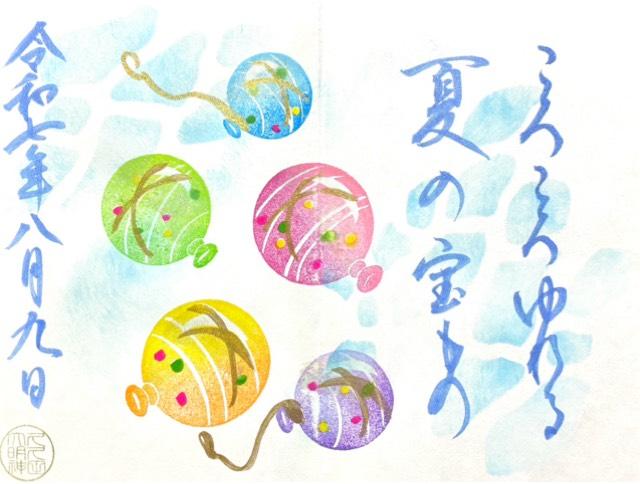 ころころゆれる
夏の宝もの
令和七年八月九日